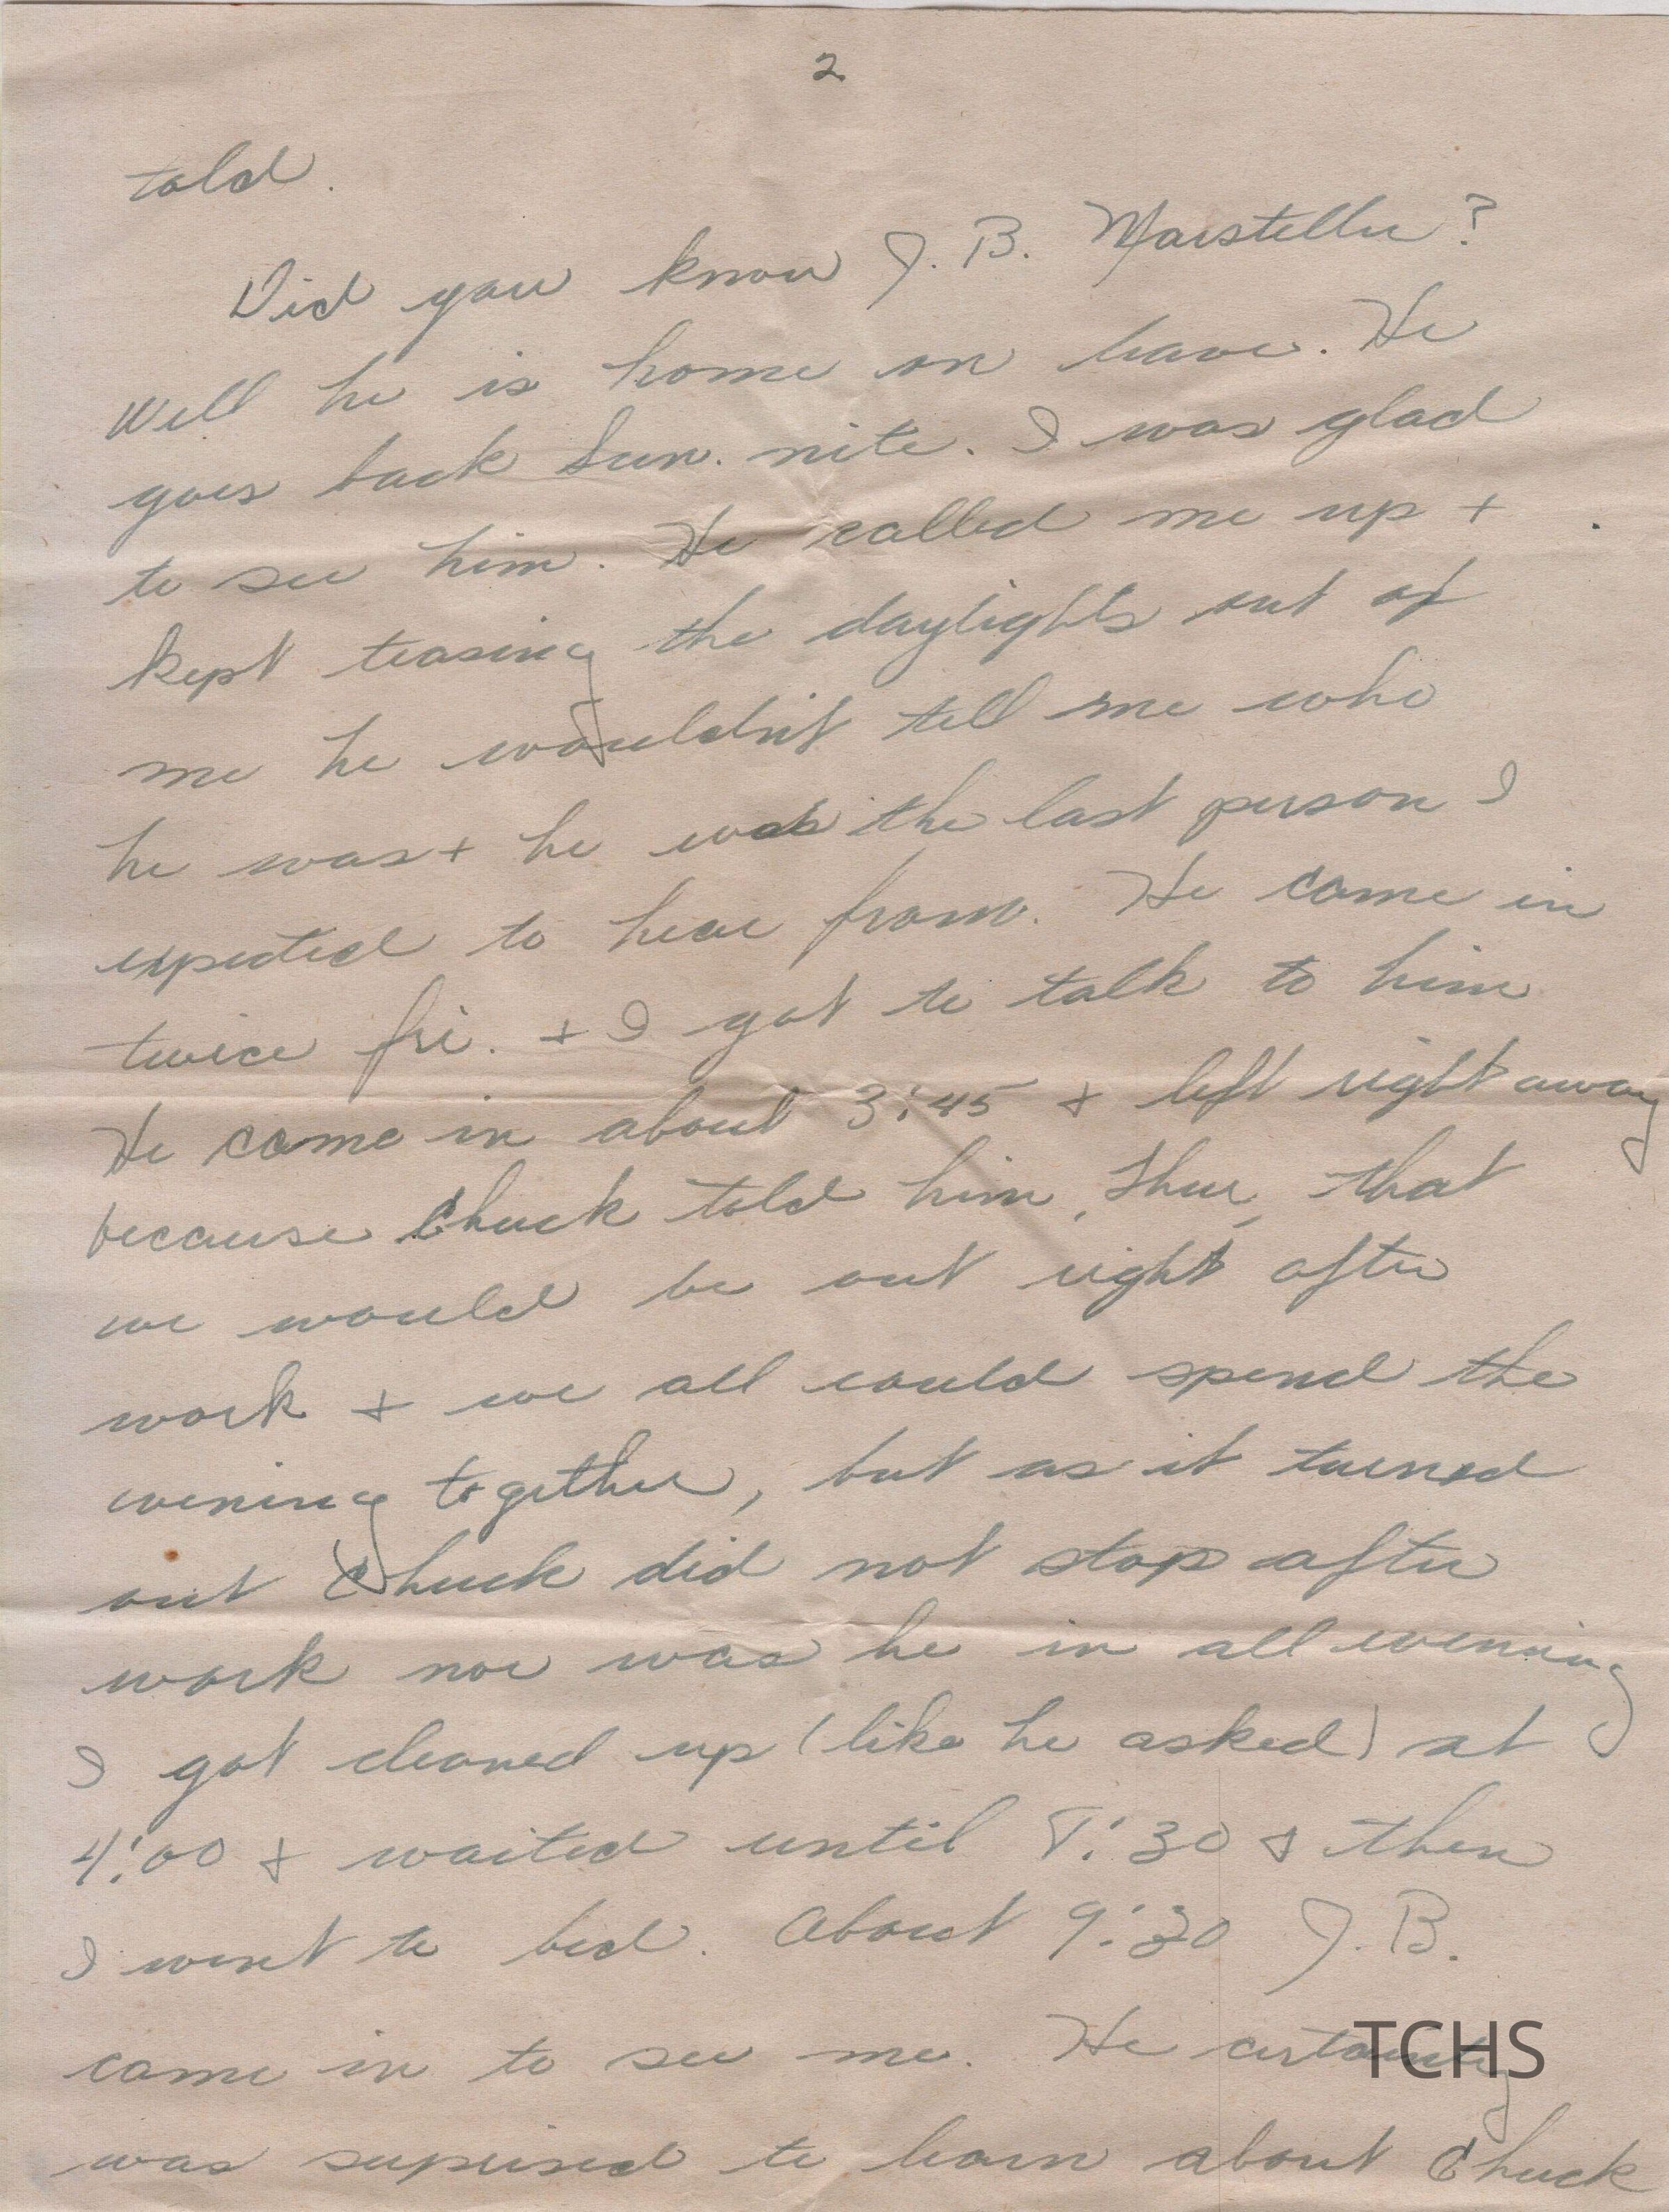 2
told.
Did you know J. B. Marsteller?
Well he is home on leave. He
goes back Sun. nite. I was glad
to see him. He called me up +
kept teasing the daylights out of
me he wouldn't tell me who
he was + he was the last person I
expected to hear from. He came in
twice fri. + I got to talk to him
He came in about 3:45 + left right away
because Chuck told him, Thur, that
we would be out right after
work + we all could spend the
evening together, but as it turned
out Chuck did not stop after
work nor was he in all evening
I got cleaned up (like he asked) at
4:00 + waited until 8:30 + then
I went to bed. About 9:30 J. B.
came in to see me. He certainly
TCHS
was suprised to learn about Chuck